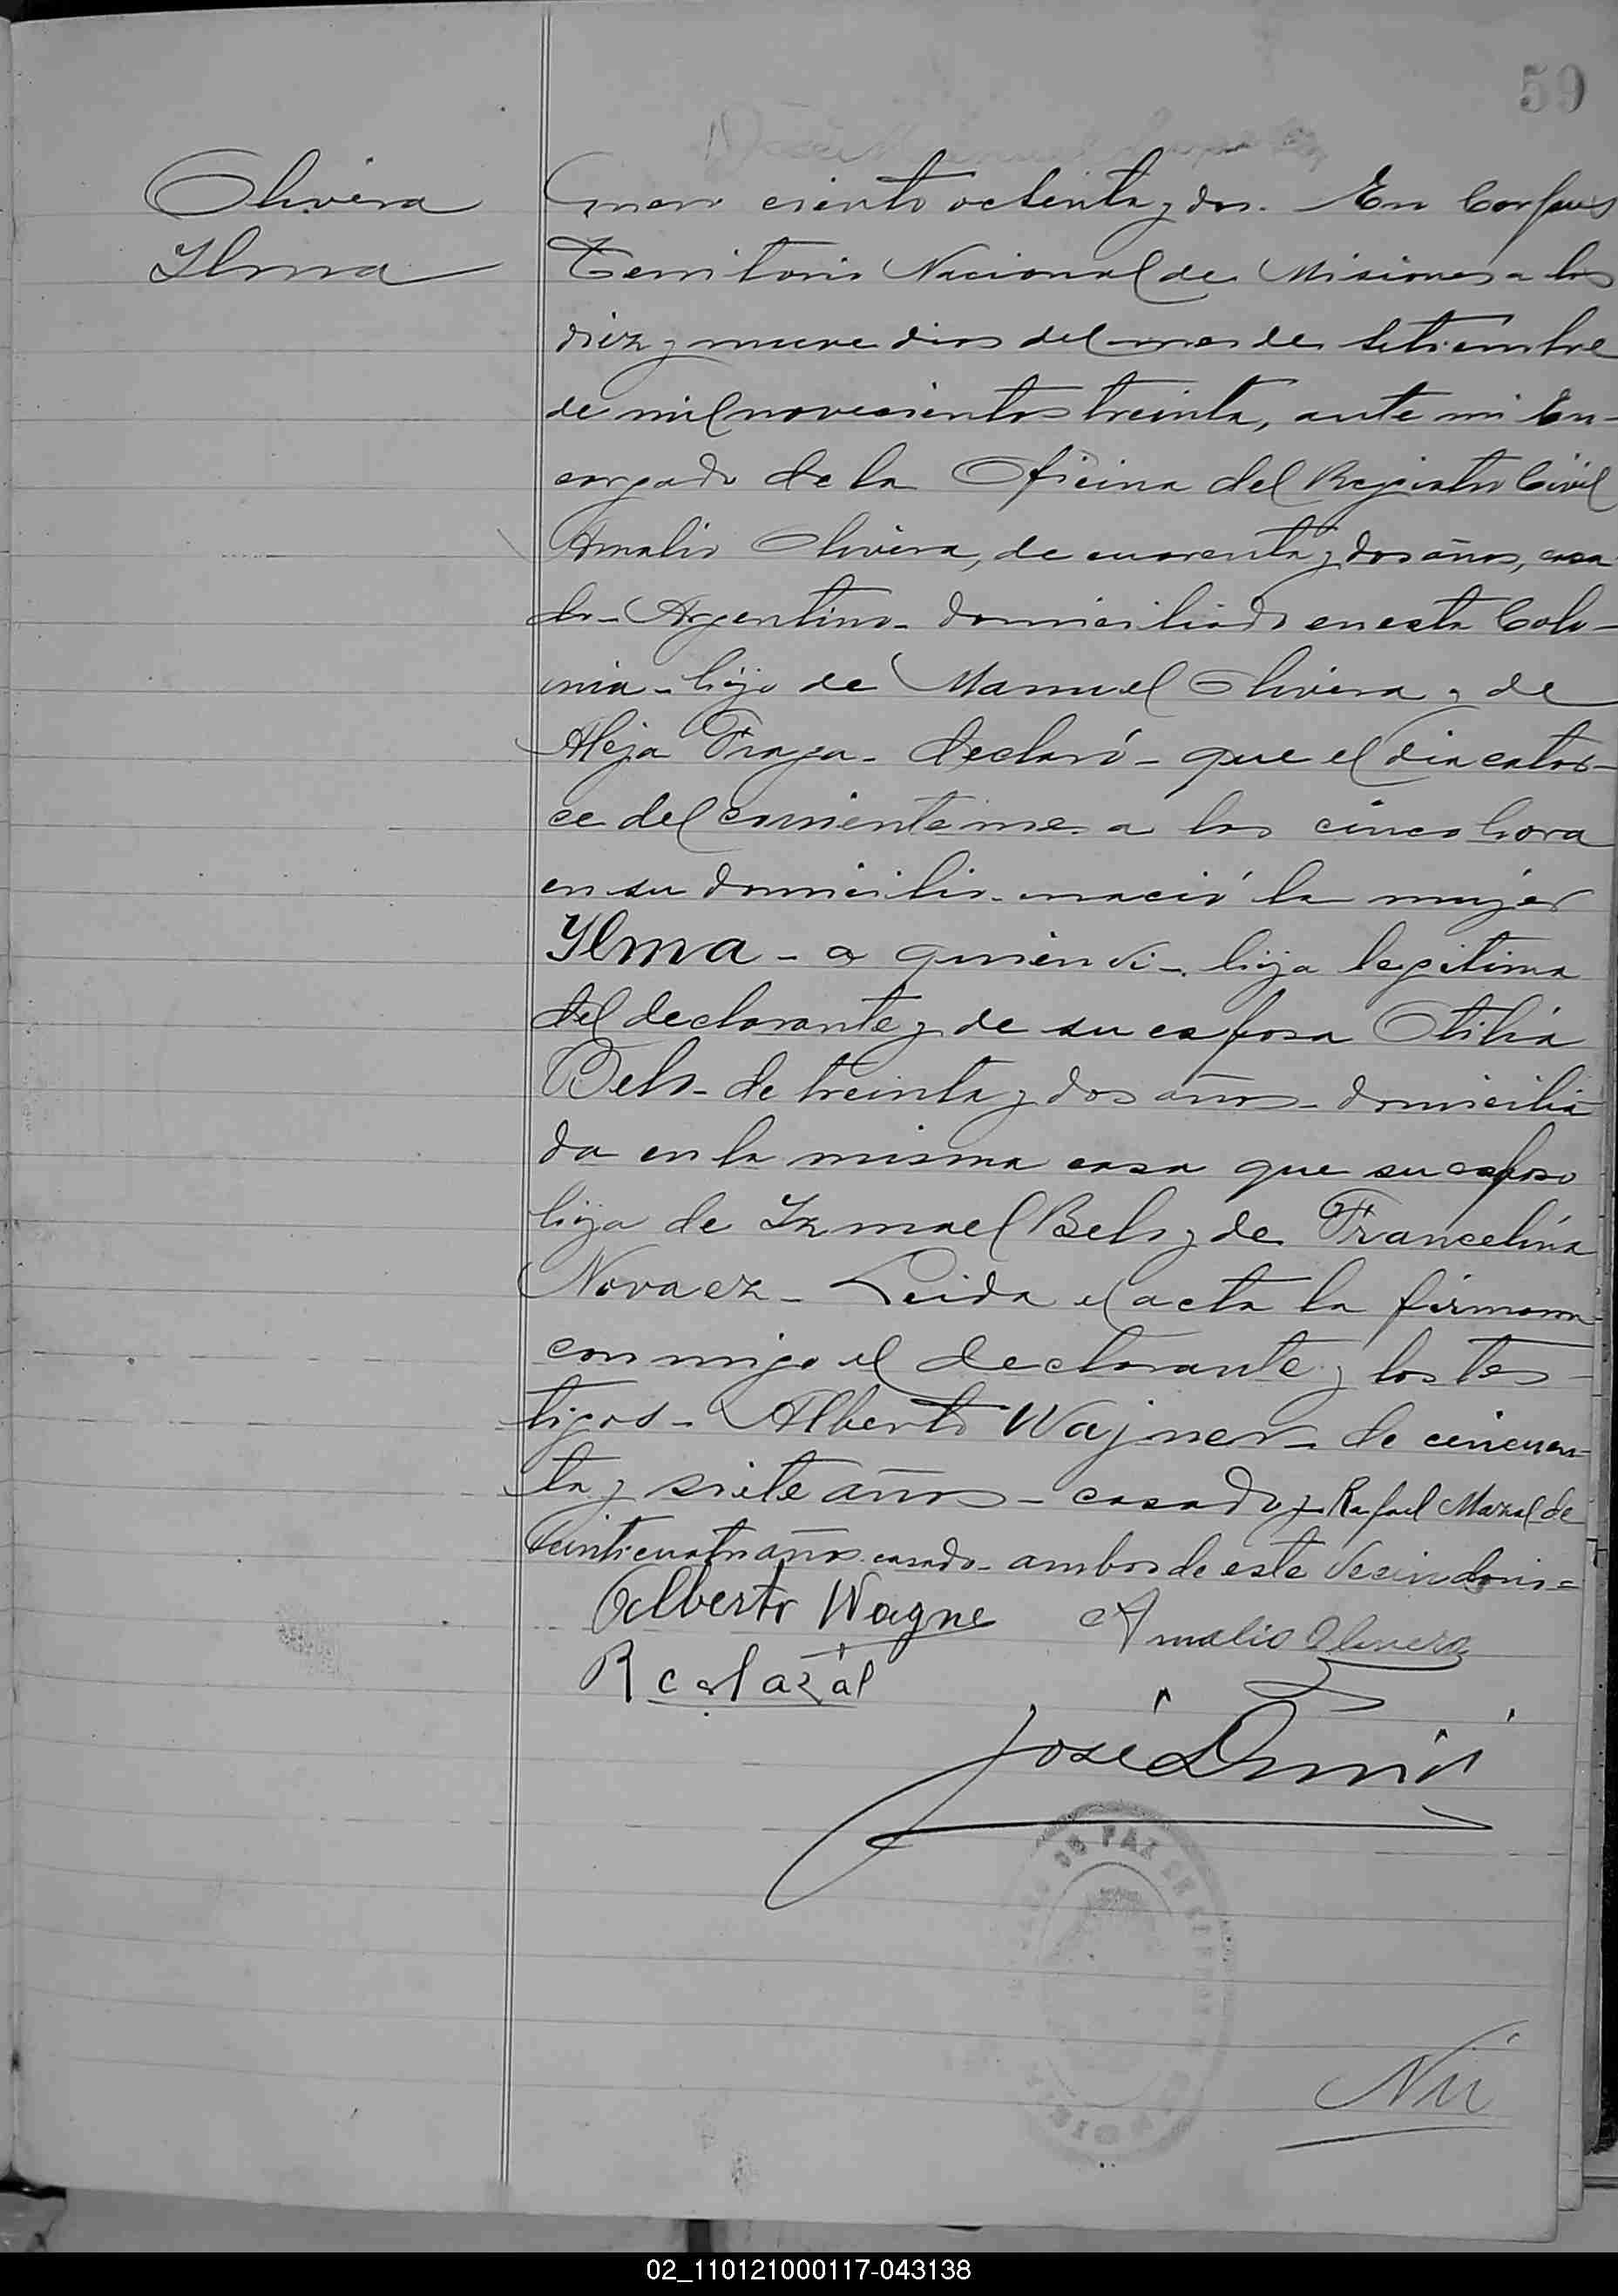 59
Olivera
Ylma
mero ciento octenta y dos. En Corpus
Territorio Nacional de Misiones a los
diez y nueve dias del mes de Setiembre
de mil novecientos treinta, ante mi En-
cargado de la Oficina del Registro Civil
Amalio Olivera, de cuarenta y dos años, casa
do - Argentino - domiciliado en esta Colo-
nia - hijo de Manuel Olivera y de
Aleja Fraga - declaró - que el dia cator-
ce del corriente mes a las cinco hora
en su domicilio - nació la mujer
Ylma - a quien vi - hija legitima
del declarante y de su esposa Otilia
Belo - de treinta y dos años - domicilia
da en la misma casa que su esposo
hija de Izmael Belo y de Francelina
Novaez - Leida el acta la firmaron
conmigo el declarante y los tes-
tigos - Alberto Wajner - de cincuen-
ta y siete años - casado y Rafael Mazal de
veinticuatro años casado - ambos de este vecindario =
Alberto Wagne Amalio Olivera
R Mazal
José
DE PAZ
Nú
02_110121000117-043138